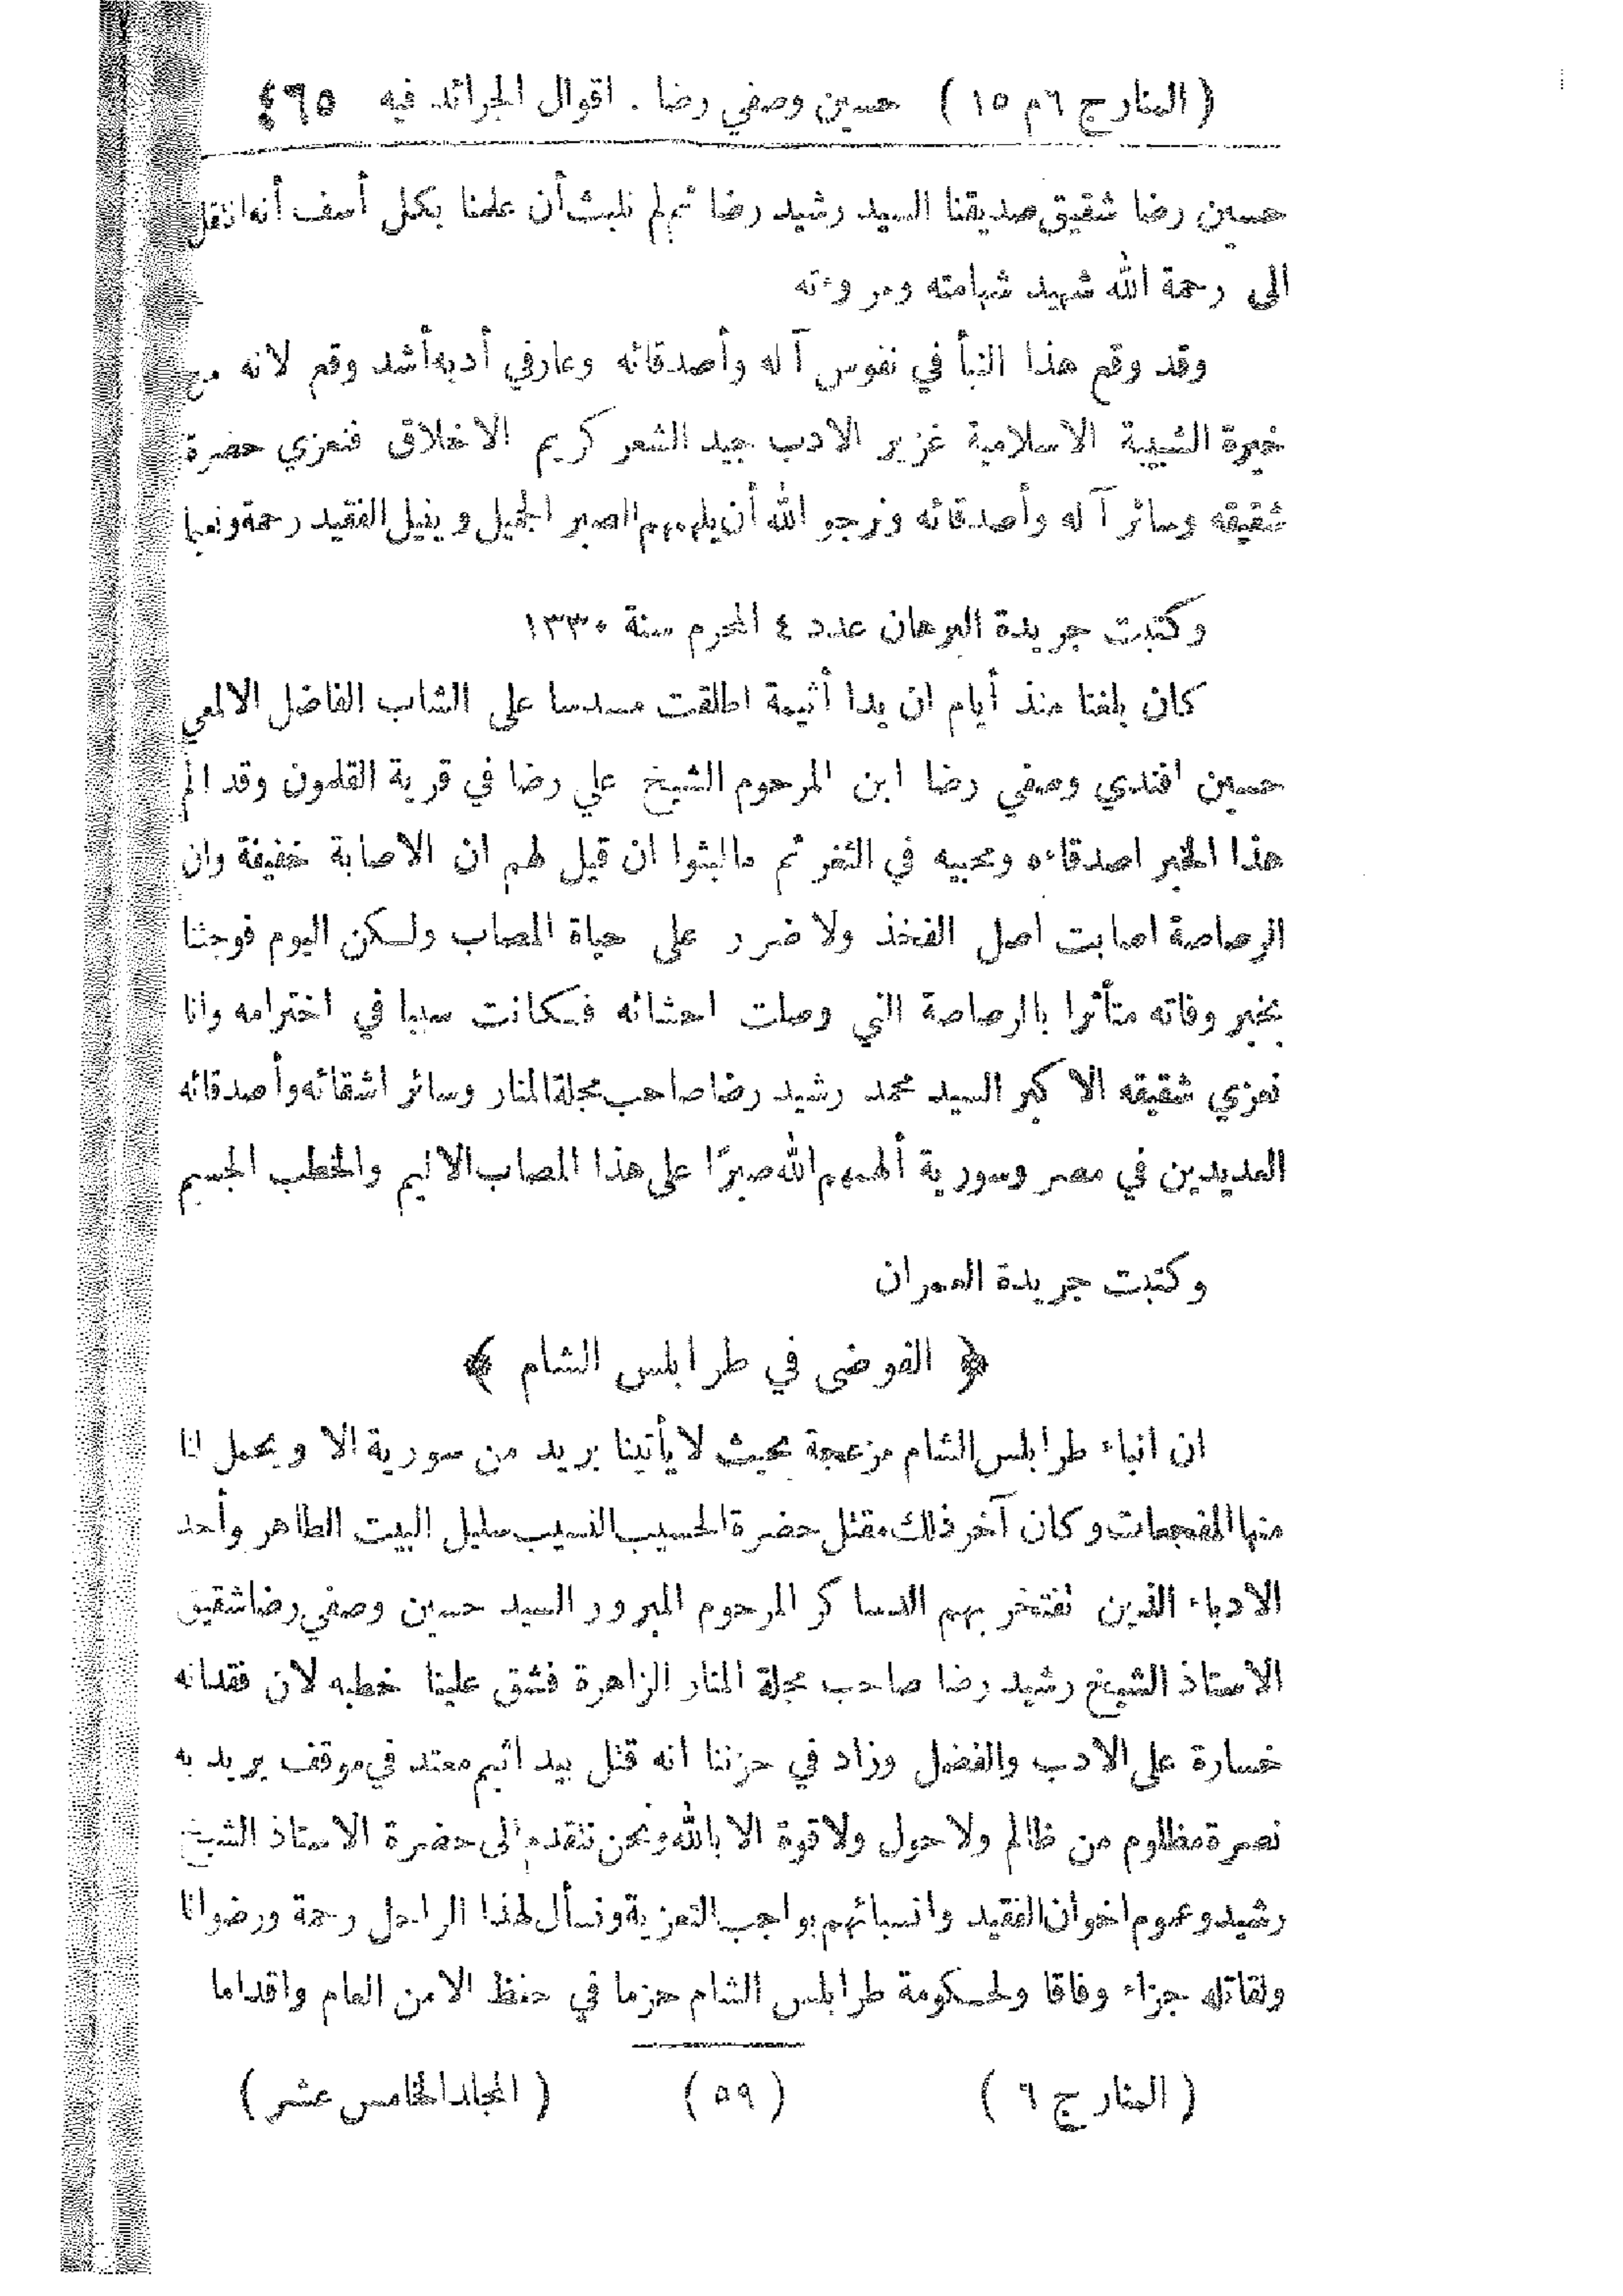 ( المنارج ٦ م ١٥ ) حسين وصفي رضا . اقوال الجرائد فيه ٤٦٥
حسين رضا شقيق صديقنا السيد رشيد رضا ثم لم نلبث أن علمنا بكل أسف أنه انتقل
الى رحمة الله شهيد شهامته ومروءته
وقد وقع هذا النبأ في نفوس آله وأصدقائه وعارفي أدبه أشد وقع لانه من
خيرة الشبيبة الاسلامية غزير الادب جيد الشعر كريم الاخلاق فنعزي حضرة
شقيقه وسائر آله وأصدقائه ونرجو الله أن يلهمهم الصبر الجميل وينيل الفقيد رحمة ونعيما
وكتبت جريدة البرهان عدد ٤ المحرم سنة ١٣٣٠
كان بلغنا منذ أيام ان يدا أثيمة اطلقت مسدسا على الشاب الفاضل الالمعي
حسين افندي وصفي رضا ابن المرحوم الشيخ علي رضا في قرية القلمون وقد الم
هذا الخبر اصدقاءه ومحبيه في الثغر ثم مالبثوا ان قيل لهم ان الاصابة خفيفة وان
الرصاصة اصابت اصل الفخذ ولا ضرر على حياة المصاب ولكن اليوم فوجئنا
بخبر وفاته متأثرا بالرصاصة التي وصلت احشائه فكانت سببا في اخترامه وانا
نعزي شقيقه الاكبر السيد محمد رشيد رضا صاحب مجلة المنار وسائر اشقائه وأصدقائه
العديدين في مصر وسورية ألهمهم الله صبرًا على هذا المصاب الاليم والخطب الجسيم
وكتبت جريدة العمران
﴿ الفوضى في طرابلس الشام ﴾
ان انباء طرابلس الشام مزعجة بحيث لا يأتينا بريد من سورية الا ويحمل لنا
منها المفجعات وكان آخر ذلك مقتل حضرة الحسيب النسيب سليل البيت الطاهر وأحد
الادباء الذين تفتخر بهم العساكر المرحوم المبرور السيد حسين وصفي رضا شقيق
الاستاذ الشيخ رشيد رضا صاحب مجلة المنار الزاهرة فشق علينا خطبه لان فقدانه
خسارة على الادب والفضل وزاد في حزننا انه قتل بيد اثيم معتد في موقف يريد به
نصرة مظلوم من ظالم ولا حول ولا قوة الا بالله ونحن نتقدم الى حضرة الاستاذ الشيخ
رشيد وعموم اخوان الفقيد وانسبائهم بواجب التعزية ونسأل لهذا الراحل رحمة ورضوانا
ولقاتله جزاء وفاقا ولحكومة طرابلس الشام حزما في حفظ الامن العام واقداما
( المنارج ٦ ) ( ٥٩ ) ( المجلد الخامس عشر )